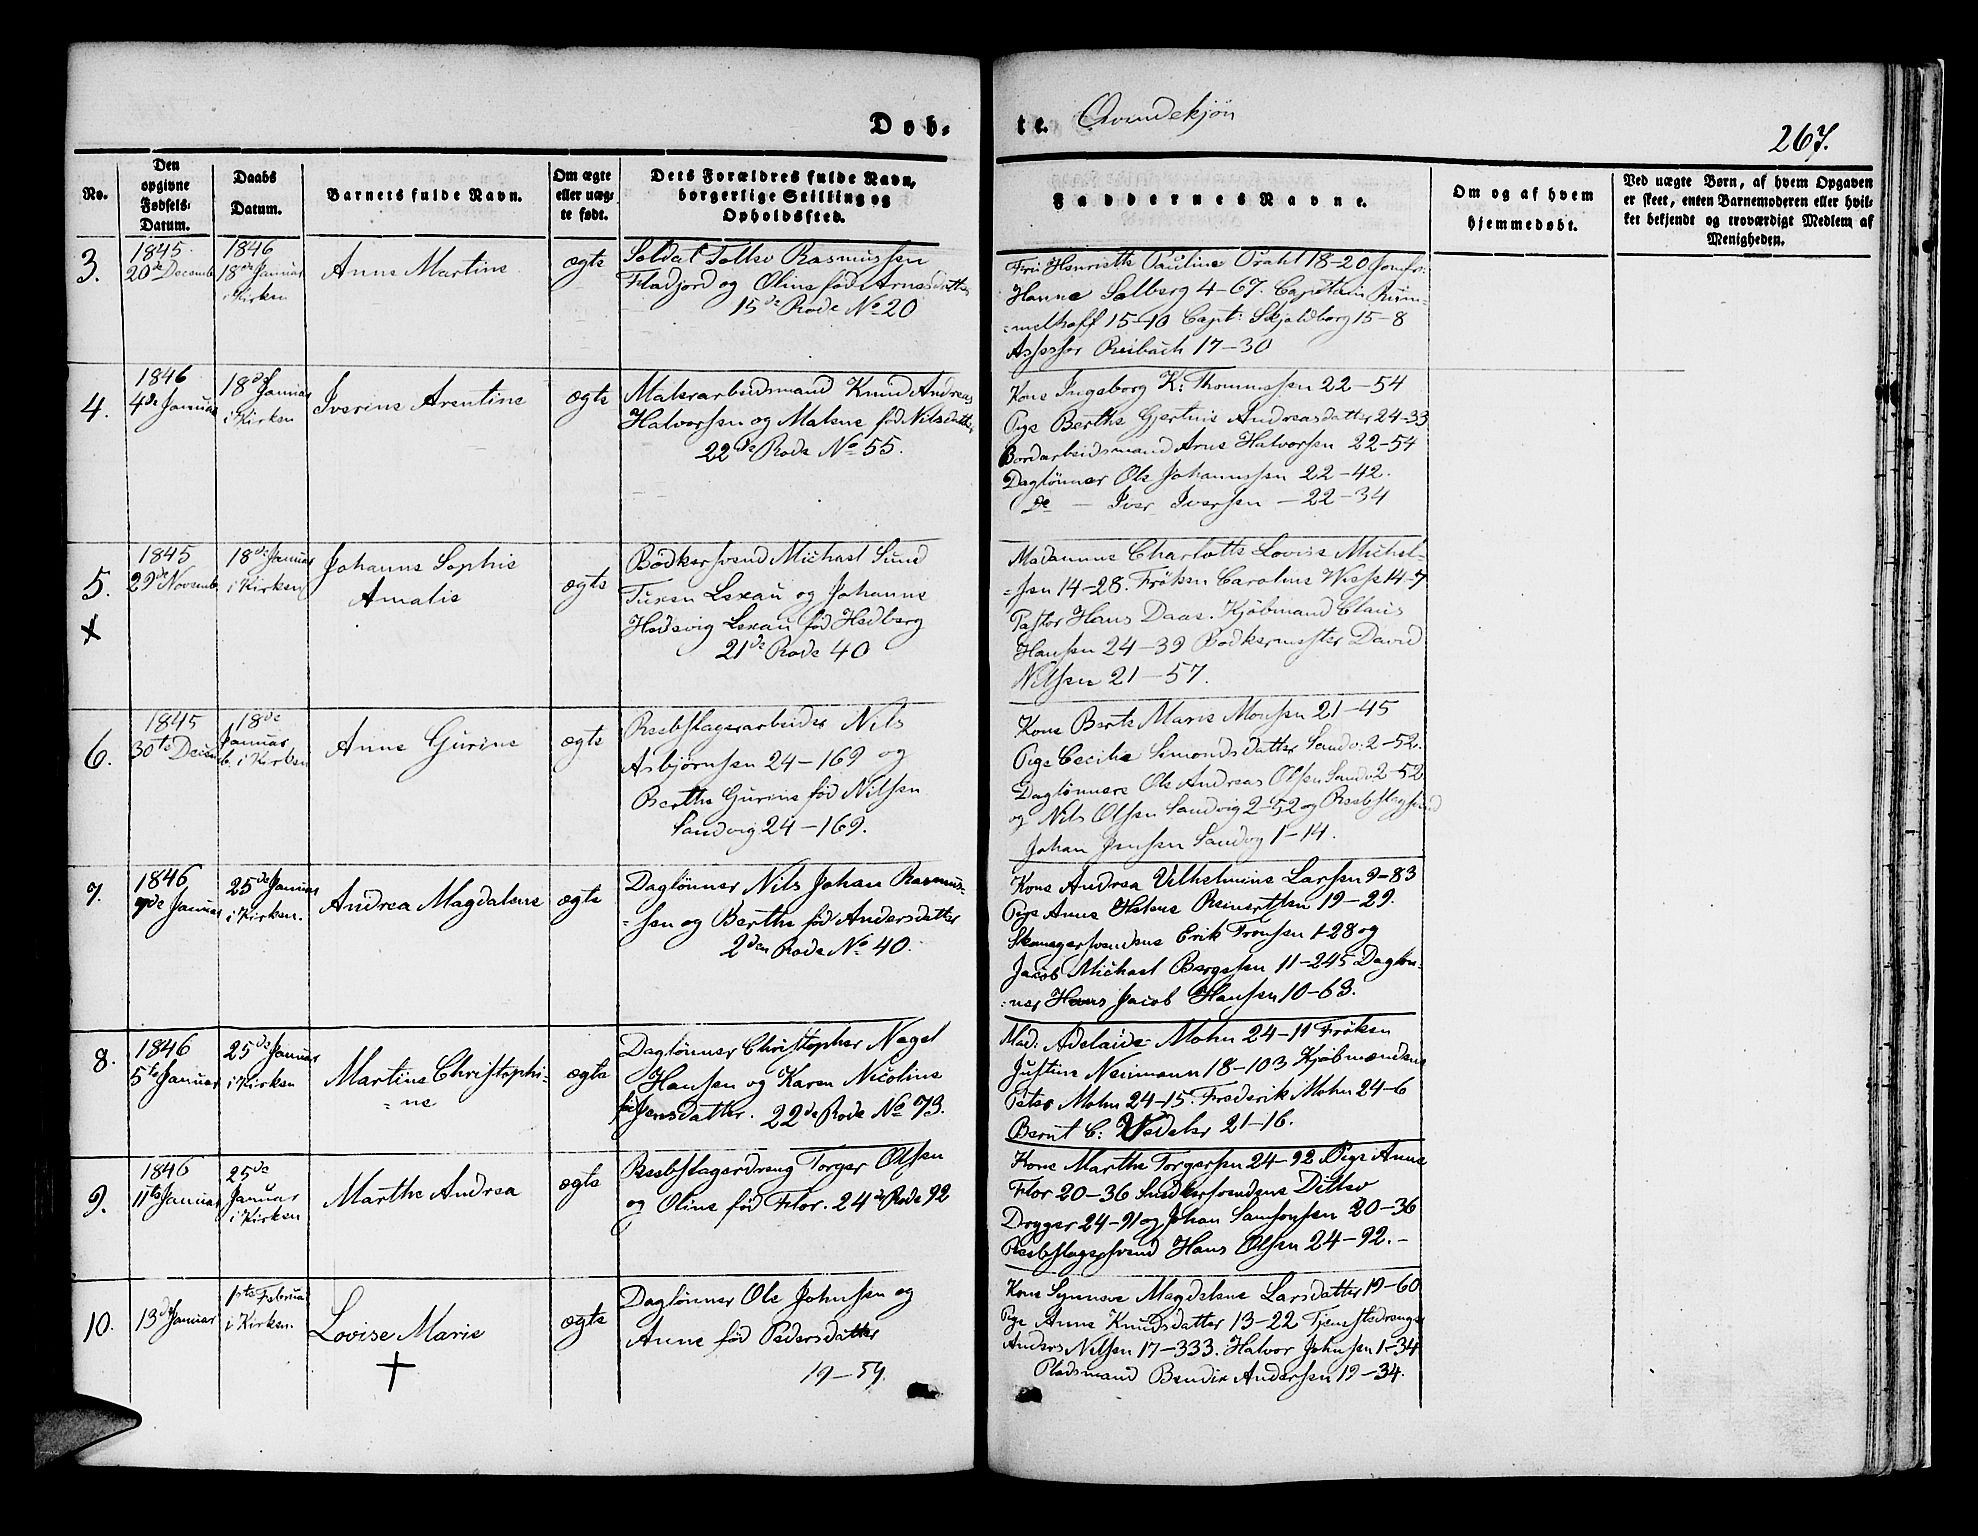 Døb-
te. Qvindekjøn
267.
No.
Den opgivne Fødsels-Datum.
Daabs Datum.
Barnets fulde Navn.
Om ægte eller uægte født.
Dets Forældres fulde Navn, borgerlige Stilling og Opholdssted.
Faddernes Navne.
Om og af hvem hjemmedøbt.
Ved uægte Børn, af hvem Opgaven er skeet, enten Barnemoderen eller hvilket bekjendt og troværdigt Medlem af Menigheden.
3.
1845
20de Decemb
1846
18de Januar
i Kirken
Anne Martine
ægte
Soldat Tollev Rasmussen
Fladjord og Oline fød Arnesdatter
15de Rode No 20
Frü Henriette Pauline Prahl 18-20 Jomfr:
Hanne Solberg 4-67. Capitain Rüm-
=melhoff 15-10 Capt: Skjoldborg 15-8
Assessor Reibach 17-30
4.
1846
4de Januar
18de Januar
i Kirken
Iverine Arentine
ægte
Malerarbeidsmand Knud Andreas
Halvorsen og Malene fød Nilsdatter
22de Rode No 55.
Kone Ingeborg K: Thommessen 22-54
Pige Berthe Gjertine Andreasdatter 24-33
Bordarbeidsmand Arne Halvorsen 22-54
Dagløner Ole Johannessen 22-42.
de - Iver Iversen - 22-34
5.
X
1845
29de Novemb
18de Januar
i Kirken
Johanne Sophie
Amalie
ægte
Bødkersvend Michael Sund
Tuxen Lexau og Johanne
Hedevig Lexau fød Hedberg
21de Rode 40
Madamme Charlotte Lovise Michel-
=sen 14-28. Frøken Caroline Wesse 14-7
Pastor Hans Daae. Kjøbmand Claus
Hansen 24-39 Bødkermester David
Nilsen 21-57.
6.
1845
30te Decem
18de
Januar
b. i Kirken
Anne Gurine
ægte
Reebslagerarbeider Nils
Asbjørnsen 24-169 og
Berthe Gurine fød Nilsen
Sandvig 24-169.
Kone Berte Marie Monsen 21-45
Pige Cecilie Simonsdatter Sandv: 2-52.
Daglønnere Ole Andreas Olsen Sandv 2-52
og Nils Olsen Sandvig 2-52 og Reebslagsvend
Johan Jensen Sandvig 1-14.
7.
1846
7de Januar
25de Januar
i Kirken.
Andrea Magdalene
ægte
Daglønner Nils Johan Rasmus-
=sen og Berthe fød Andersdatter
2den Rode No 40.
Kone Andrea Vilhelmine Larsen 9-83
Pige Anne Helene Reinertsen 19-29.
Skomagersvendene Erik Tronsen 1-28 og
Jacob Michael Bergesen 11-245 Dagløn-
=ner Hans Jacob Hansen 10-63.
8.
1846
5te Januar
25de Januar
i Kirken
Martine Christophi-
=ne
ægte
Daglønner Christopher Nagel
Hansen og Karen Nicoline
fød Jensdatter. 22de Rode No 73.
Mad: Adelaide Mohn 24-11 Frøken
Justine Neumann 18-103 Kjøbmændene
Peter Mohn 24-15. Frederik Mohn 24-6
Bernt C: Vedeler 21-16.
9.
1846
11te Januar
25de
Januar
i Kirken
Marthe Andrea
ægte
Reebslagerdreng Torger Olsen
og Oline fød Flor. 24de Rode 92
Kone Marthe Torgersen 24-92 Pige Anne
Flor 20-36 Snedkersvendene Ditlev
Drøger 24-91 og Johan Samsonsen 20-36
Reebslagersvend Hans Olsen 24-92.-
10.
13de Januar
1ste Februar
i Kirken.
Lovise Marie
ægte
Daglønner Ole Johnsen og
Anne fød Pedersdatter
19-59.
Kone Synneve Magdelene Larsdatter 19-60
Pige Anne Knudsdatter 13-22 Tjenestedrenge
Anders Nilsen 17-333. Halvor Johnsen 1-34
Pladsmand Bendix Andersen 19-34.